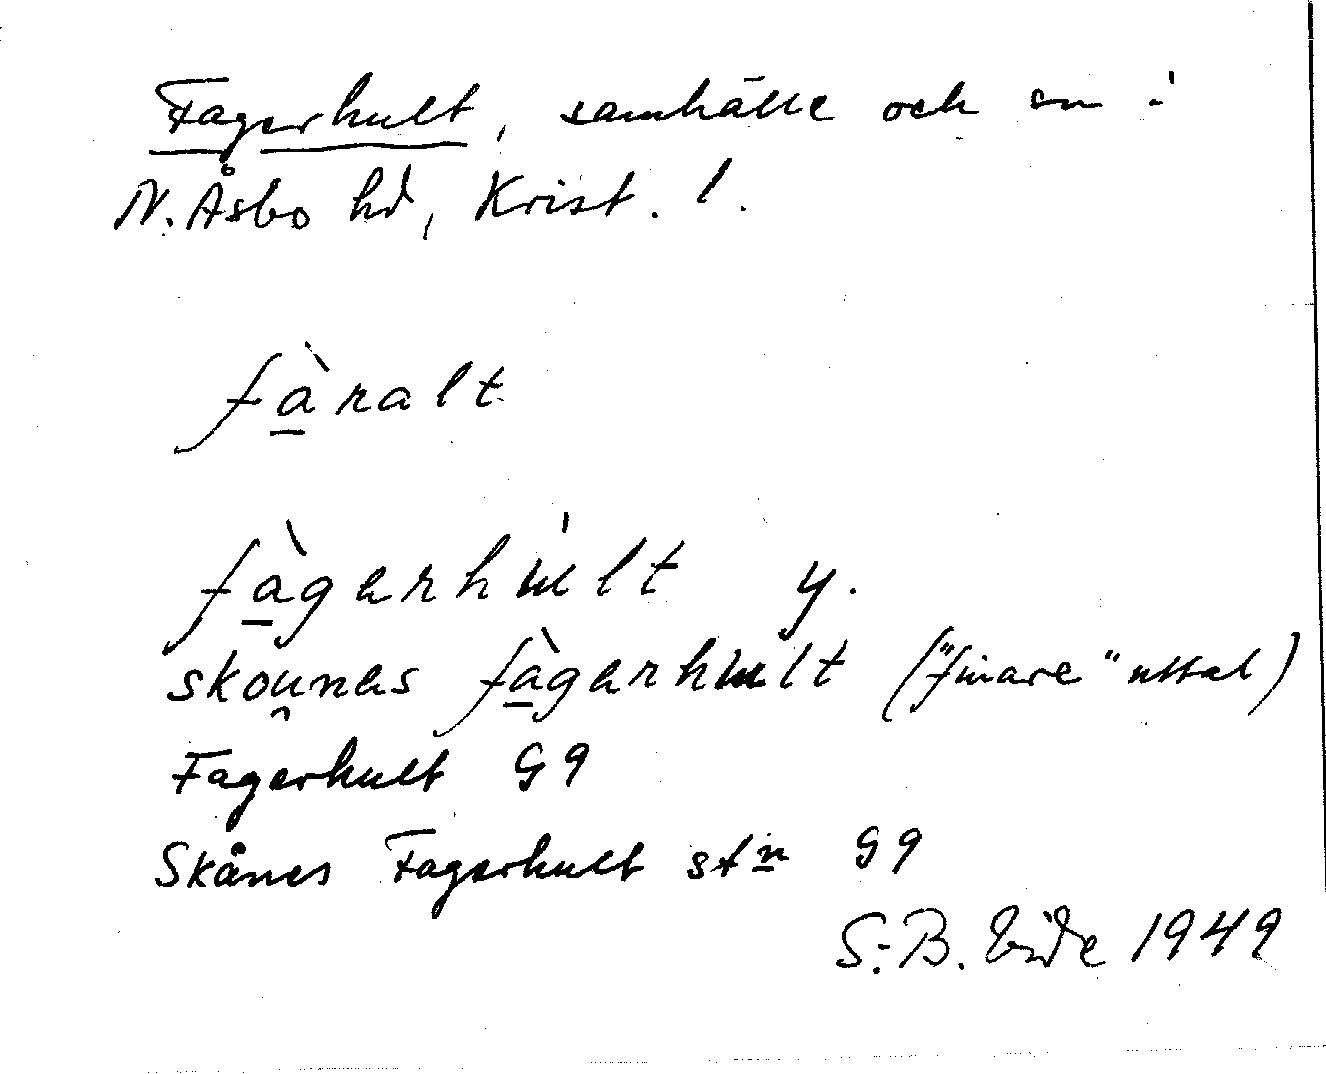 Fagerhult, samhälle och sn i
N. Åsbo hd, Krist. l.
fàralt
fàgerhult y.
skounes fàgerhult ("finare" uttal)
Fagerhult G9
Skånes Fagerhult stn G9
S.-B. Vide 1949